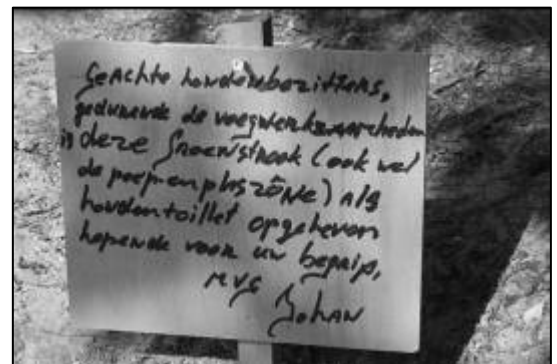 Geachte hondenbezitters,
gedurende de voegwerkzaamheden
is deze groenstrook (ook wel
de poep en plaszône) als
hondentoillet opgeheven
hopende voor uw begrip,
MVG Johan